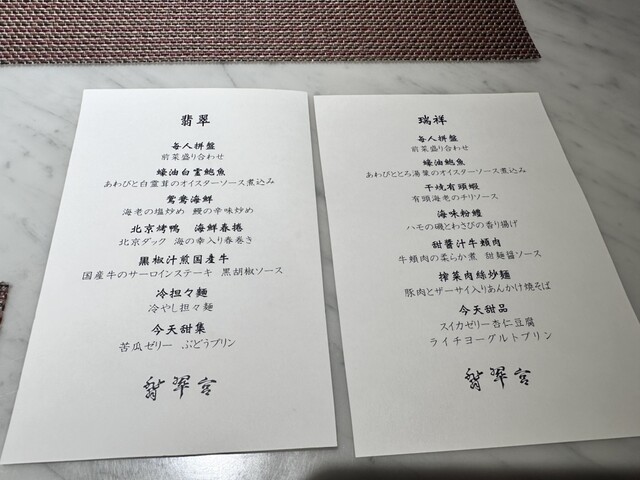 翡翠
毎人拼盤
前菜盛り合わせ
蠔油白霊鮑魚
あわびと白霊茸のオイスターソース煮込み
鴛鴦海鮮
海老の塩炒め 鰻の辛味炒め
北京烤鴨 海鮮春捲
北京ダック 海の幸入り春巻き
黒椒汁煎国産牛
国産牛のサーロインステーキ 黒胡椒ソース
冷担々麺
冷やし担々麺
今天甜集
苦瓜ゼリー ぶどうプリン
翡翠宮
瑞祥
毎人拼盤
前菜盛り合わせ
蠔油鮑魚
あわびととろ湯葉のオイスターソース煮込み
干焼有頭蝦
有頭海老のチリソース
海味粉鱧
ハモの磯とわさびの香り揚げ
甜醤汁牛頬肉
牛頬肉の柔らか煮 甜麺醤ソース
搾菜肉絲炒麺
豚肉とザーサイ入りあんかけ焼そば
今天甜品
スイカゼリー杏仁豆腐
ライチヨーグルトプリン
翡翠宮